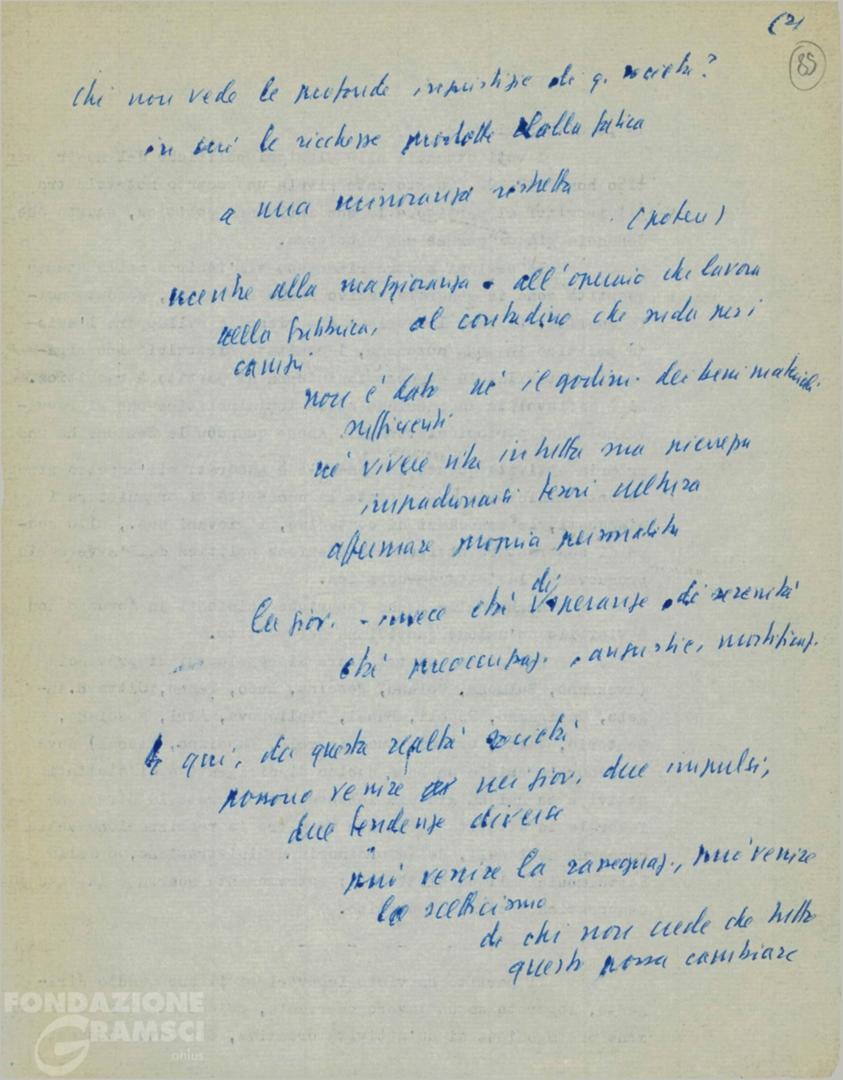 (2)
85
Chi non vede le profonde ingiustizie di q. società?
in cui le ricchezze prodotte dalla fatica
a una minoranza ristretta
(poteri)
mentre alla maggioranza all'operaio che lavora
nella fabbrica, al contadino che suda nei
campi
non è dato né il godim. dei beni materiali
sufficienti
né vivere vita in tutta sua pienezza
impadronirsi tesori cultura
affermare propria personalità
La giov. - invece età di speranze di serenità
età preoccupaz., angustie, mortificaz.
E qui, da questa realtà società
possono venire nei giov. due impulsi,
due tendenze diverse
può venire la rassegnaz., può venire
lo scetticismo
di chi non crede che tutto
questo possa cambiare
FONDAZIONE
GRAMSCI
onlus